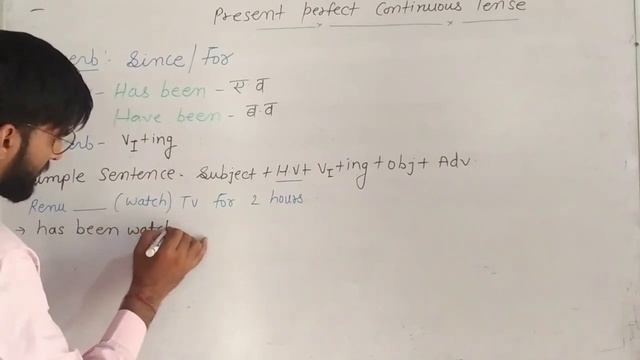 Present perfect Continuous Tense
erb: Since/For
- Has been - ए व
Have been - ब.व
erb- V₁+ing
mple Sentence. Subject + HV + V₁+ing + Obj + Adv.
Renu ___ (watch) TV for 2 hours.
→ has been watch